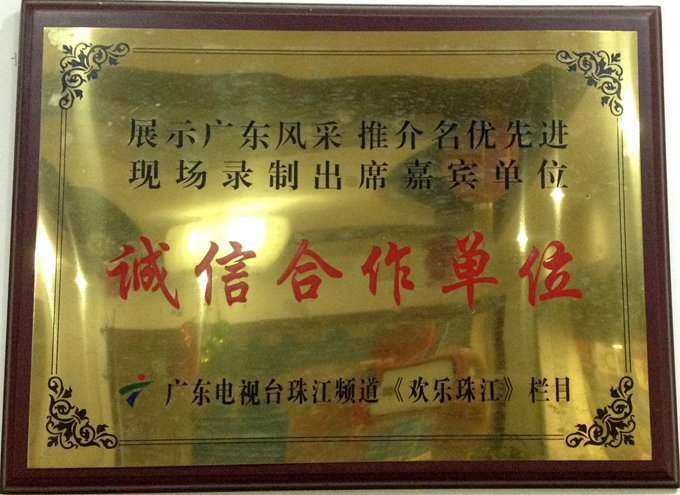 展示广东风采 推介名优先进
现场录制出席嘉宾单位
诚信合作单位
广东电视台珠江频道《欢乐珠江》栏目